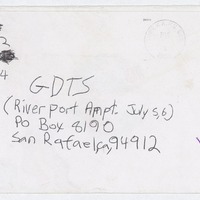 GDTS
(Riverport Ampt. July 5,6)
PO Box 8190
San Rafael,ca,94912
4